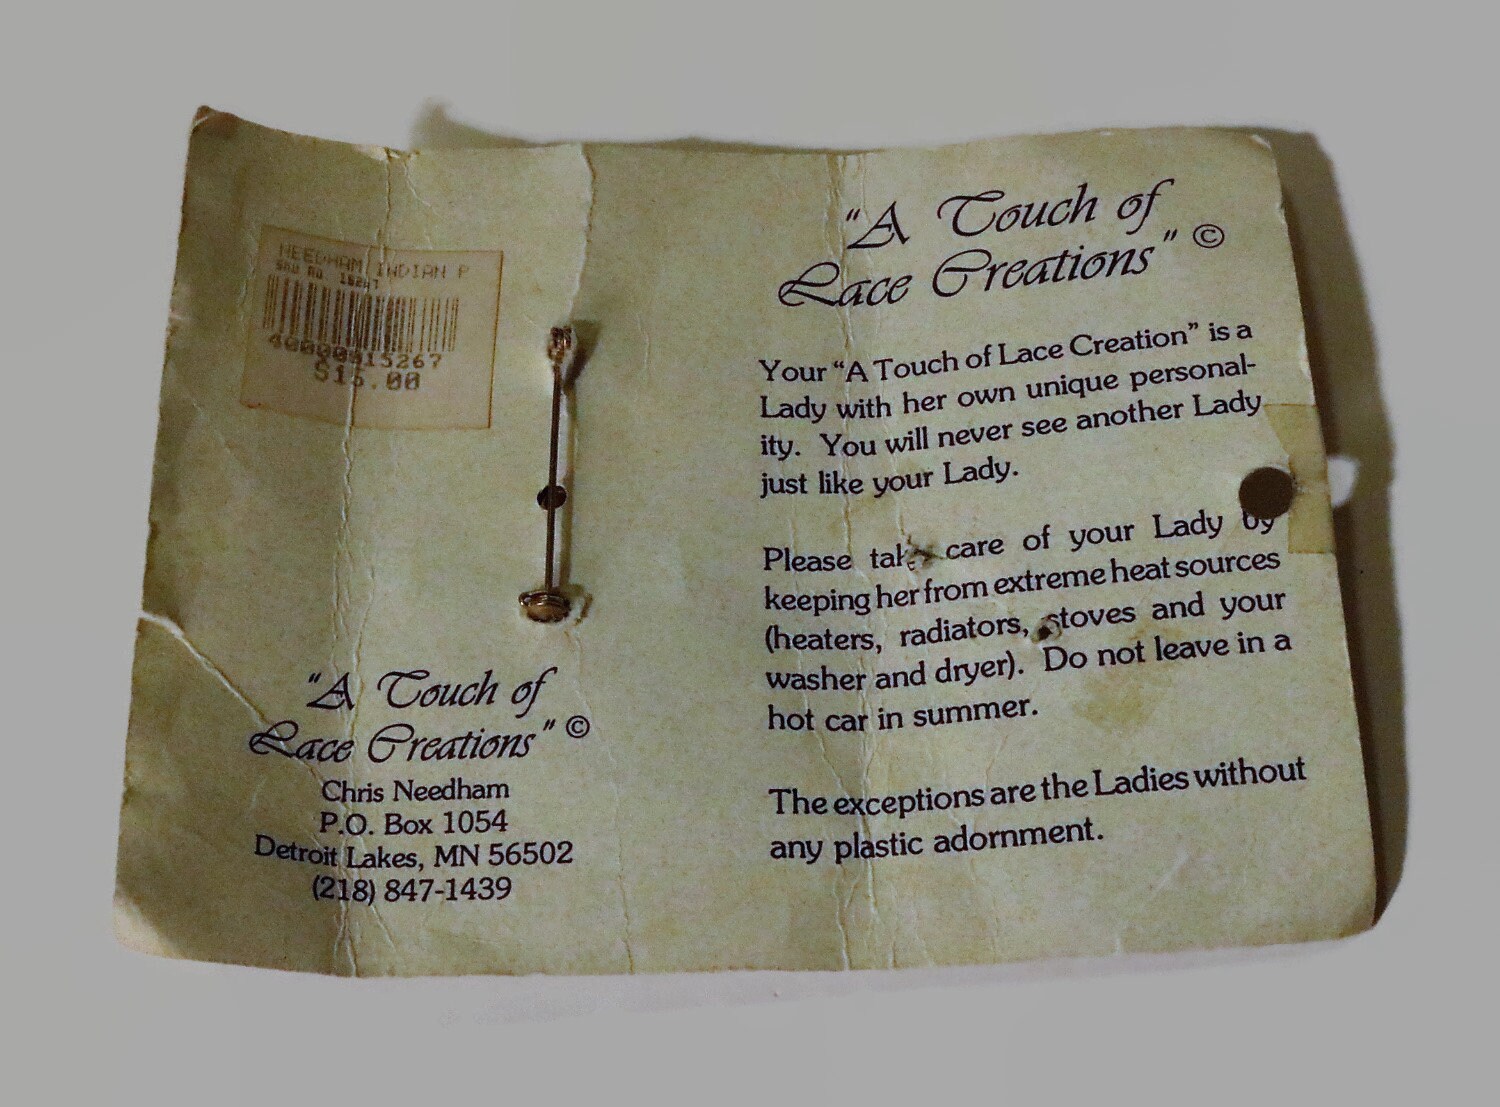 NEEDHAM INDIAN P
40000015267
$15.00
"A Touch of
Lace Creations" ©
Chris Needham
P.O. Box 1054
Detroit Lakes, MN 56502
(218) 847-1439
"A Touch of
Lace Creations" ©
Your "A Touch of Lace Creation" is a
Lady with her own unique personal-
ity. You will never see another Lady
just like your Lady.
Please take care of your Lady by
keeping her from extreme heat sources
(heaters, radiators, stoves and your
washer and dryer). Do not leave in a
hot car in summer.
The exceptions are the Ladies without
any plastic adornment.